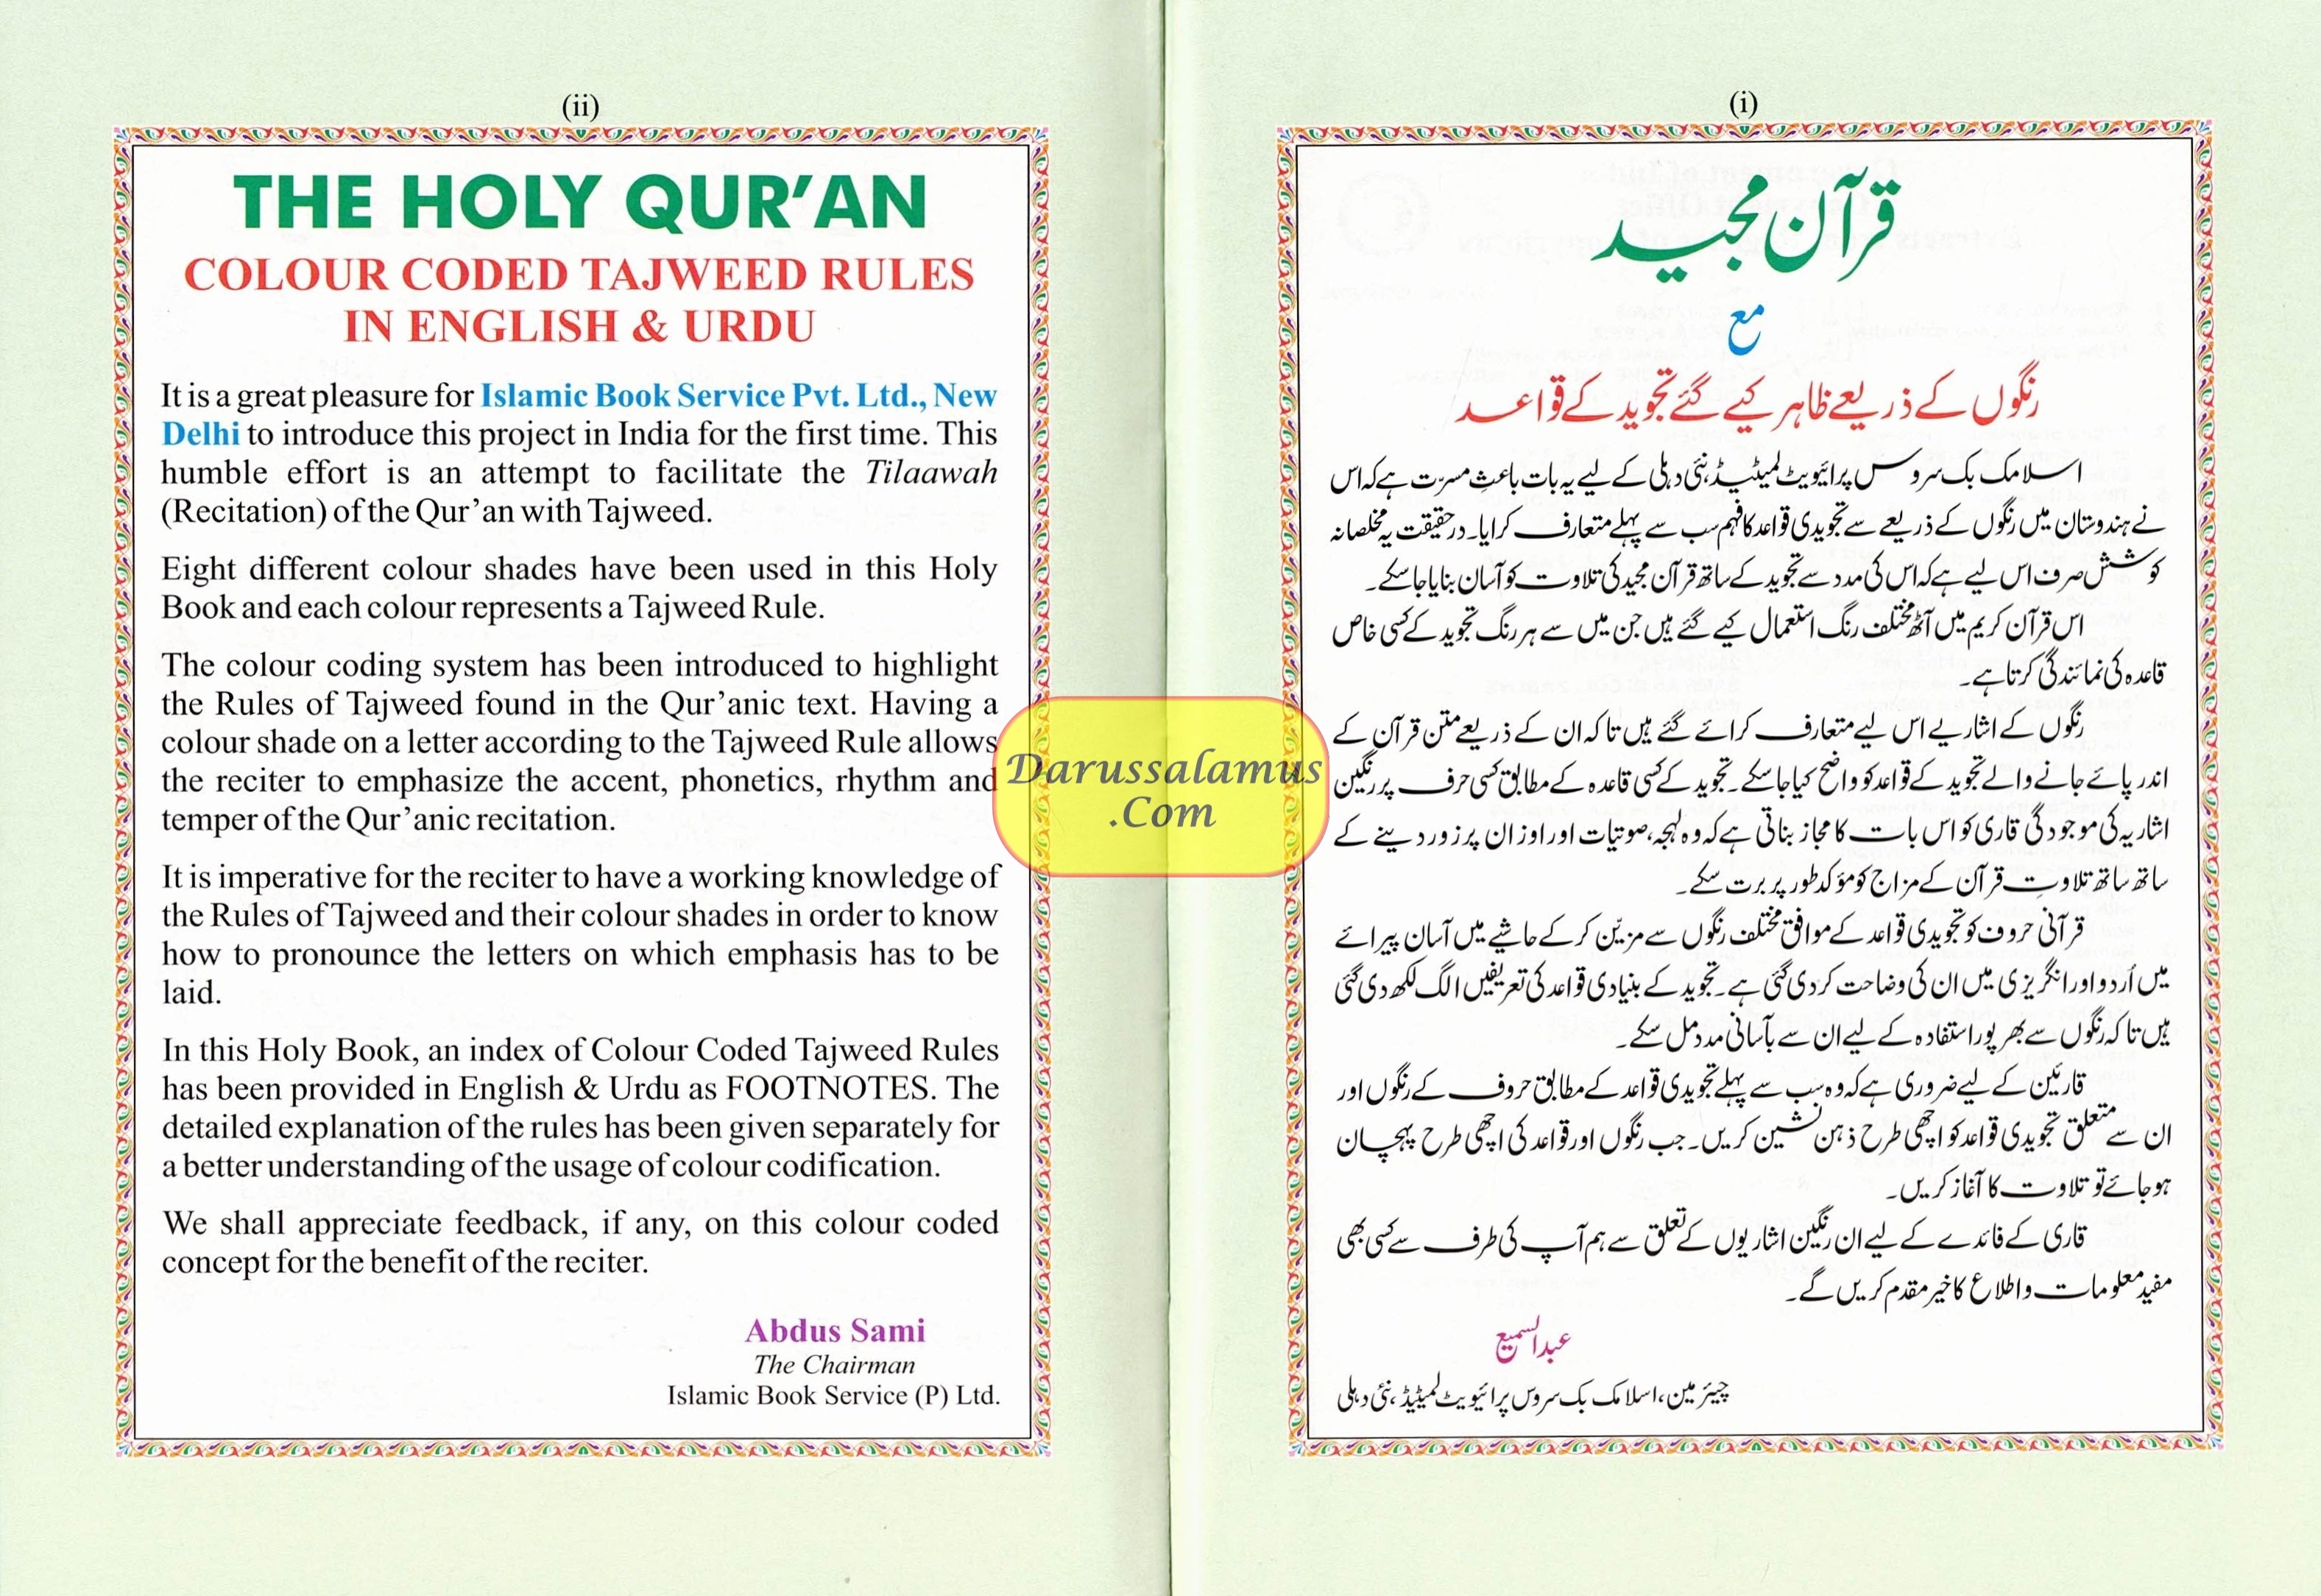 (ii)
THE HOLY QUR’AN
COLOUR CODED TAJWEED RULES
IN ENGLISH & URDU
It is a great pleasure for Islamic Book Service Pvt. Ltd., New
Delhi to introduce this project in India for the first time. This
humble effort is an attempt to facilitate the Tilaawah
(Recitation) of the Qur’an with Tajweed.
Eight different colour shades have been used in this Holy
Book and each colour represents a Tajweed Rule.
The colour coding system has been introduced to highlight
the Rules of Tajweed found in the Qur’anic text. Having a
colour shade on a letter according to the Tajweed Rule allows
the reciter to emphasize the accent, phonetics, rhythm and
temper of the Qur’anic recitation.
It is imperative for the reciter to have a working knowledge of
the Rules of Tajweed and their colour shades in order to know
how to pronounce the letters on which emphasis has to be
laid.
In this Holy Book, an index of Colour Coded Tajweed Rules
has been provided in English & Urdu as FOOTNOTES. The
detailed explanation of the rules has been given separately for
a better understanding of the usage of colour codification.
We shall appreciate feedback, if any, on this colour coded
concept for the benefit of the reciter.
Abdus Sami
The Chairman
Islamic Book Service (P) Ltd.
Darussalamus
.Com
(i)
قرآن مجید
مع
رنگوں کے ذریعے ظاہر کیے گئے تجوید کے قواعد
اسلامک بک سروس پرائیویٹ لمیٹیڈ، نئی دہلی کے لیے یہ بات باعثِ مسرّت ہے کہ اس
نے ہندوستان میں رنگوں کے ذریعے سے تجویدی قواعد کا فہم سب سے پہلے متعارف کرایا۔ درحقیقت یہ مخلصانہ
کوشش صرف اس لیے ہے کہ اس کی مدد سے تجوید کے ساتھ قرآن مجید کی تلاوت کو آسان بنایا جا سکے۔
اس قرآن کریم میں آٹھ مختلف رنگ استعمال کیے گئے ہیں جن میں سے ہر رنگ تجوید کے کسی خاص
قاعدہ کی نمائندگی کرتا ہے۔
رنگوں کے اشاریے اس لیے متعارف کرائے گئے ہیں تاکہ ان کے ذریعے متن قرآن کے
اندر پائے جانے والے تجوید کے قواعد کو واضح کیا جا سکے۔ تجوید کے کسی قاعدہ کے مطابق کسی حرف پر رنگین
اشاریہ کی موجودگی قاری کو اس بات کا مجاز بناتی ہے کہ وہ لہجہ، صوتیات اور اوزان پر زور دینے کے
ساتھ ساتھ تلاوتِ قرآن کے مزاج کو مؤکد طور پر برت سکے۔
قرآنی حروف کو تجویدی قواعد کے موافق مختلف رنگوں سے مزیّن کر کے حاشیے میں آسان پیرائے
میں اُردو اور انگریزی میں ان کی وضاحت کر دی گئی ہے۔ تجوید کے بنیادی قواعد کی تعریفیں الگ لکھ دی گئی
ہیں تاکہ رنگوں سے بھرپور استفادہ کے لیے ان سے بآسانی مدد مل سکے۔
قارئین کے لیے ضروری ہے کہ وہ سب سے پہلے تجویدی قواعد کے مطابق حروف کے رنگوں اور
ان سے متعلق تجویدی قواعد کو اچھی طرح ذہن نشین کریں۔ جب رنگوں اور قواعد کی اچھی طرح پہچان
ہو جائے تو تلاوت کا آغاز کریں۔
قاری کے فائدے کے لیے ان رنگین اشاریوں کے تعلق سے ہم آپ کی طرف سے کسی بھی
مفید معلومات و اطلاع کا خیر مقدم کریں گے۔
عبدالسمیع
چیئر مین، اسلامک بک سروس پرائیویٹ لمیٹیڈ، نئی دہلی